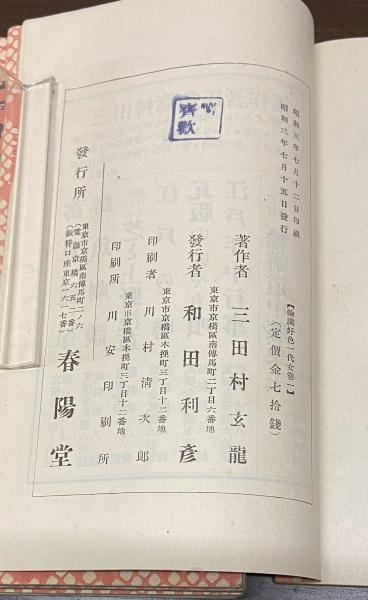 昭和三年七月十二日印刷
昭和三年七月十五日發行
【輪講好色一代女卷一】
(定價金七拾錢)
著作者 三田村玄龍
東京市京橋區南傳馬町二丁目六番地
發行者 和田利彥
東京市京橋區木挽町三丁目十二番地
印刷者 川村淸次郎
東京市京橋區木挽町三丁目十二番地
印刷所 川安印刷所
發行所
東京市京橋區南傳馬町二ノ六
(電話京橋六五一二番)
(振替口座東京一六一七番)
春陽堂